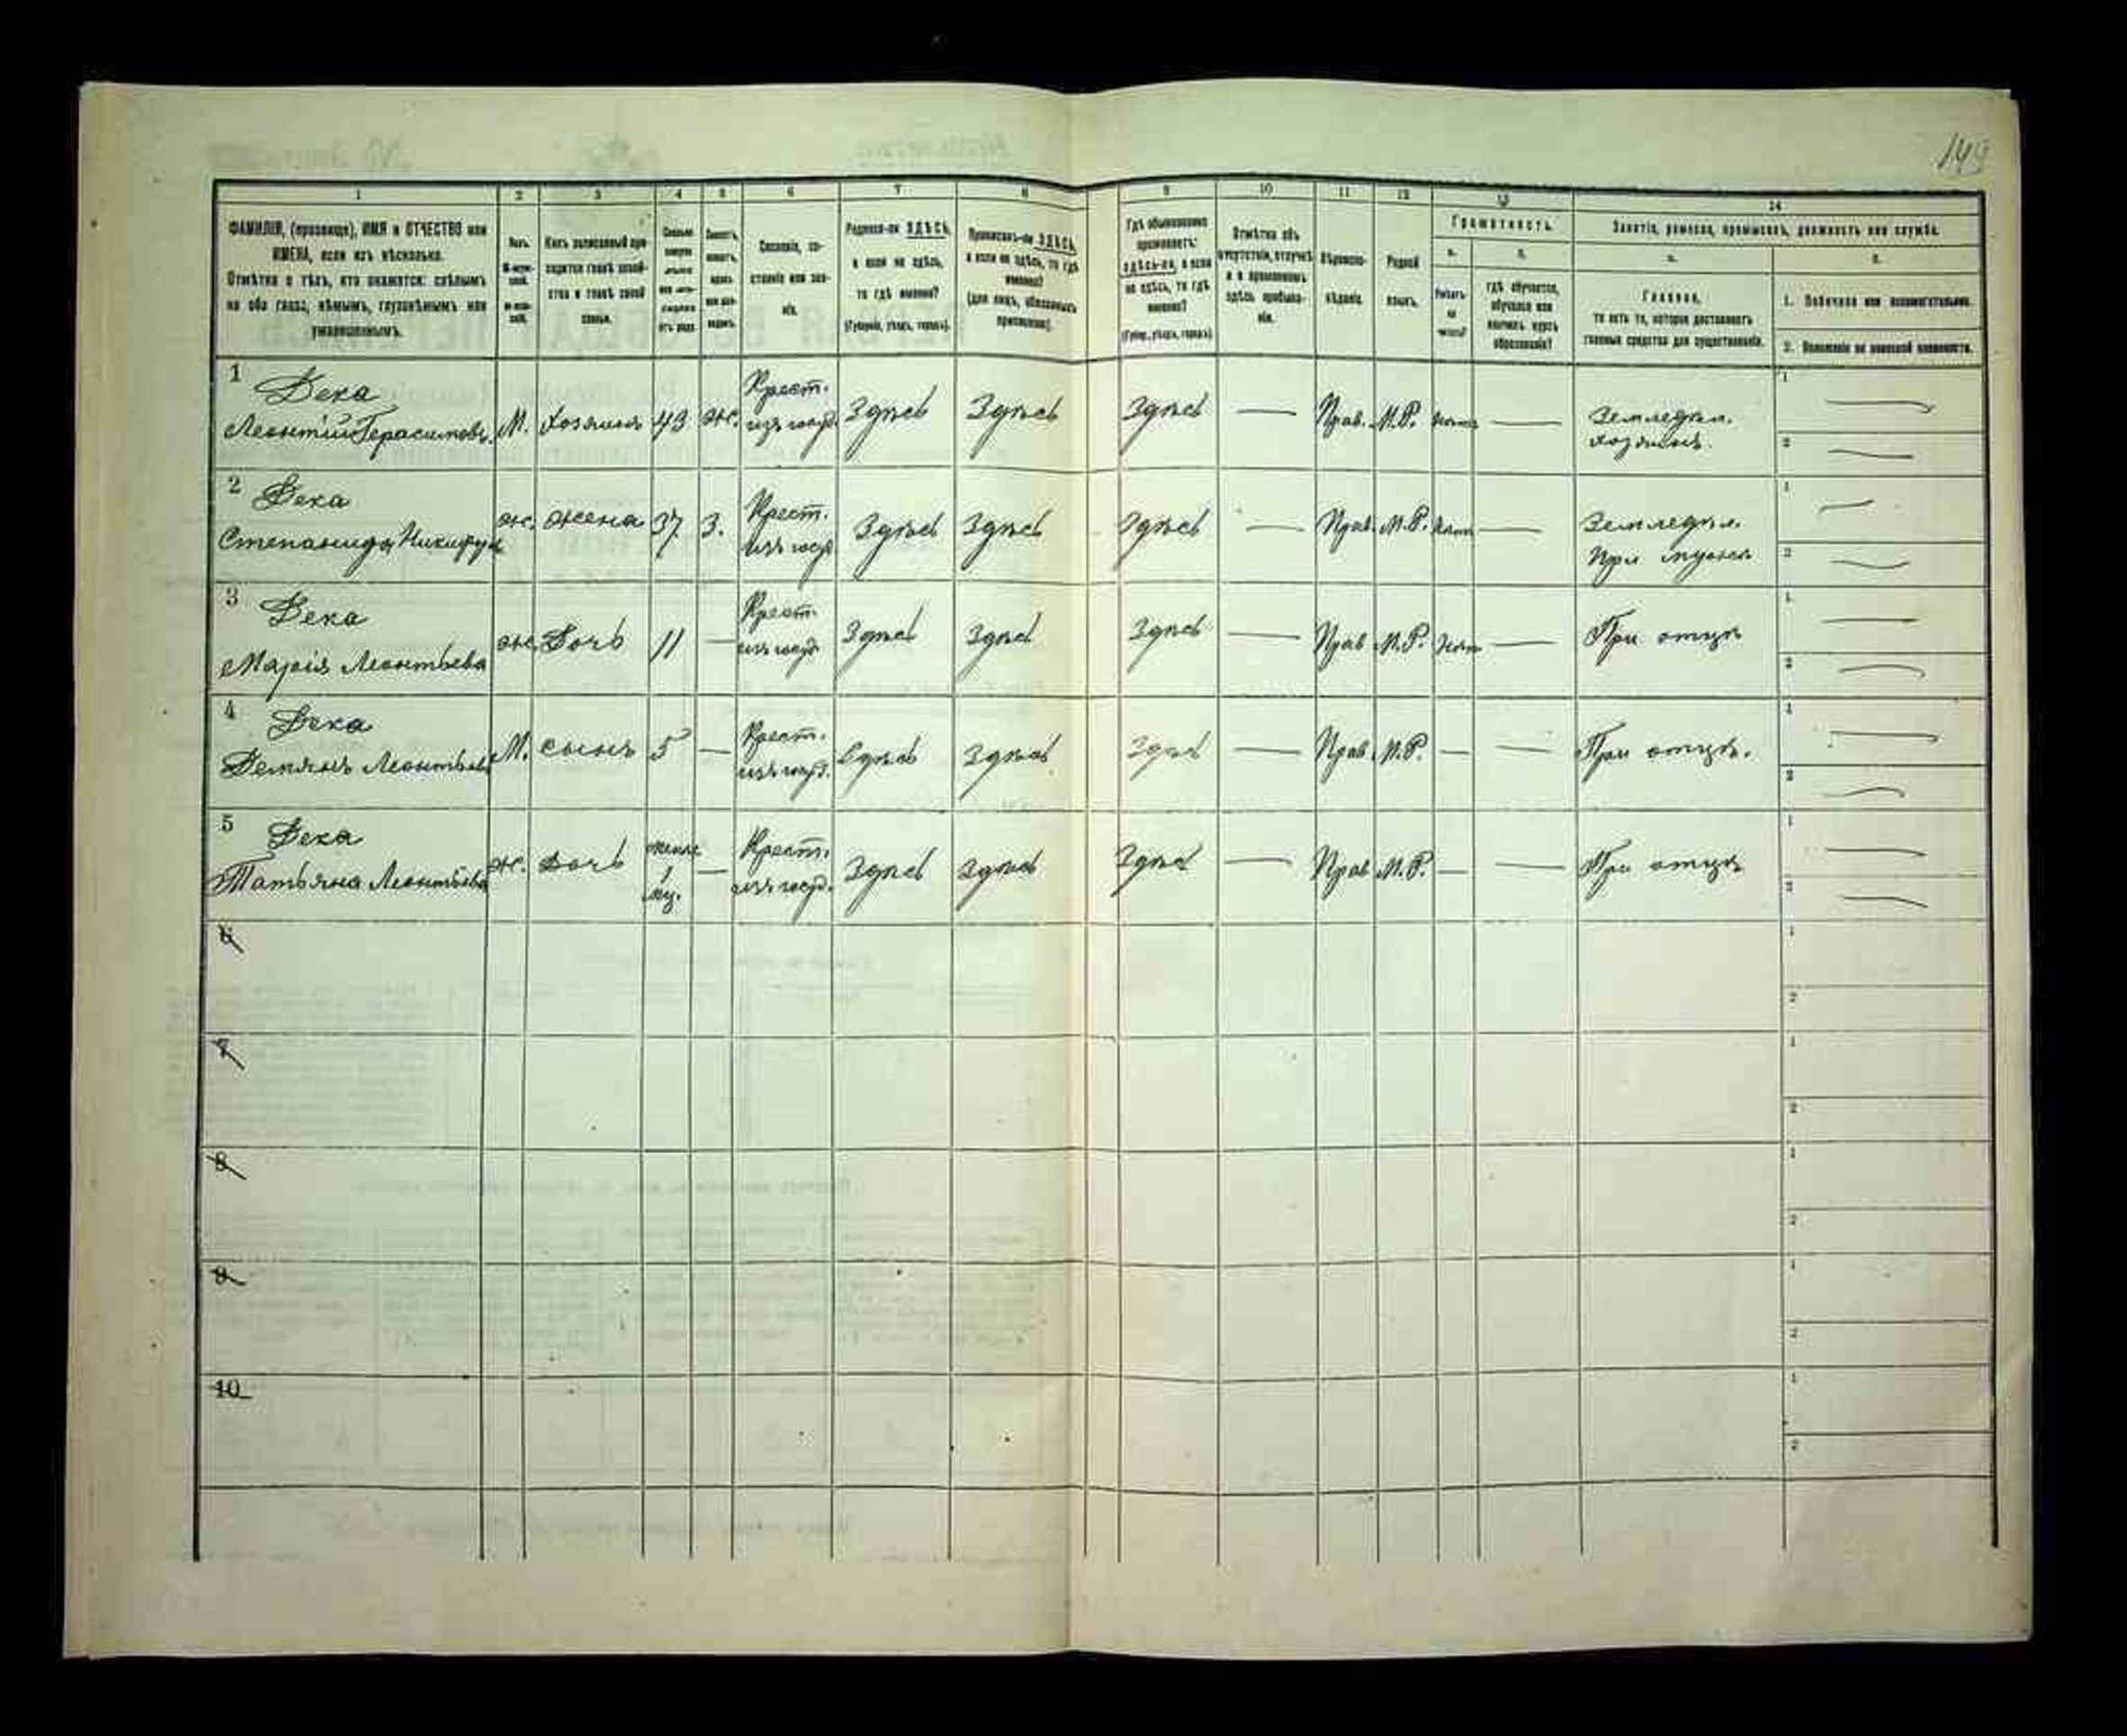 149
1
2
3
4
5
6
7
8
9
10
11
12
13
14
ФАМИЛІЯ, (прозвище), ИМЯ и ОТЧЕСТВО или
ИМЕНА, если ихъ нѣсколько.
Отмѣтка о тѣхъ, кто окажется: слѣпымъ
на оба глаза, нѣмымъ, глухонѣмымъ или
умалишеннымъ.
Полъ.
Какъ записанный при-
ходится главѣ хозяй-
ства и главѣ своей
семьи.
Сословіе, со-
стояніе или зва-
ніе.
Родился-ли ЗДѢСЬ,
а если не здѣсь,
то гдѣ именно?
(Губернія, уѣздъ, городъ).
Приписанъ-ли ЗДѢСЬ,
а если не здѣсь, то гдѣ
именно?
(для лицъ, обязанныхъ
припискою).
Гдѣ обыкновенно
проживаетъ:
здѣсь-ли, а если
не здѣсь, то гдѣ
именно?
(Губер., уѣздъ, городъ).
Отмѣтка объ
отсутствіи, отлучкѣ
и о временномъ
здѣсь пребыва-
ніи.
Вѣроиспо-
вѣданіе.
Родной
языкъ.
Грамотность.
а.
б.
Умѣетъ
ли
читать?
гдѣ обучается,
обучался или
кончилъ курсъ
образованія?
Занятіе, ремесло, промыселъ, должность или служба.
а.
б.
Главное,
то есть то, которое доставляетъ
главныя средства для существованія.
1. Побочное или вспомогательное.
2. Положеніе по воинской повинности.
1 Дека
Леонтій Герасимовъ М. Хозяинъ 49 ж. Крест. изъ госуд. Здѣсь Здѣсь Здѣсь — Прав. М.Р. нѣтъ — Земледѣл. хозяинъ. 1 — 2 —
2 Дека
Степанида Никифор ж. жена 37 З. Крест. изъ госуд Здѣсь Здѣсь Здѣсь — Прав. М.Р. нѣтъ — Земледѣл. При мужѣ 1 — 2 —
3 Дека
Марія Леонтьева ж. Дочь 11 — Крест. изъ госуд. Здѣсь Здѣсь Здѣсь — Прав М.Р. нѣтъ — При отцѣ 1 — 2 —
4 Дека
Демянъ Леонтьев М. сынъ 5 — Крест. изъ госуд. Здѣсь Здѣсь Здѣсь — Прав. М.Р. — — При отцѣ. 1 — 2 —
5 Дека
Татьяна Леонтьева ж. Дочь менѣе 1 мц. — Крест. изъ госуд. Здѣсь Здѣсь Здѣсь — Прав М.Р. — — При отцѣ 1 — 2 —
6 1
2
7 1
2
8 1
2
9 1
2
10 1
2